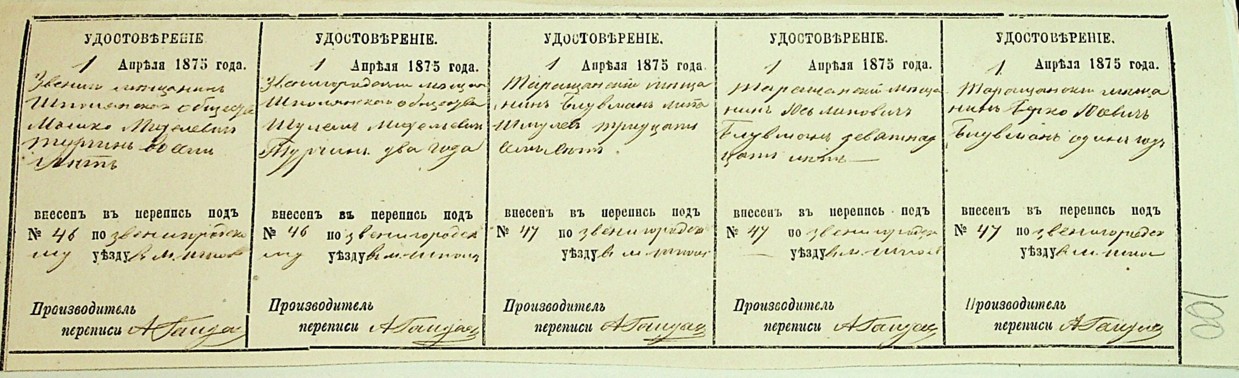 УДОСТОВѢРЕНІЕ
1 Апрѣля 1875 года.
Звениг мещанинъ
Шполянскаго общества
Мошко
восемь
лѣтъ
внесенъ въ перепись подъ
№ 46 по звенигородско
му уѣзду в м. Шпола
Производитель
переписи
УДОСТОВѢРЕНІЕ.
1 Апрѣля 1875 года.
Звенигородскій мещан
Шполянскаго общества
Шулемъ
Турчинъ два года
внесенъ въ перепись подъ
№ 46 по звенигородск
му уѣзду в м. Шпола
Производитель
переписи
УДОСТОВѢРЕНІЕ.
1 Апрѣля 1875 года.
Таращанскій меща
нинъ Блувманъ Липа
Шмулев тридцать
семь лѣтъ
внесенъ въ перепись подъ
№ 47 по звенигородск
уѣзду в м. Шпола
Производитель
переписи
УДОСТОВѢРЕНІЕ.
1 Апрѣля 1875 года.
Таращанскій меща
нинъ Юсь Липовичъ
Блувманъ девятнад
цать лѣтъ
внесенъ въ перепись подъ
№ 47 по звенигородск
уѣзду в м. Шпола
Производитель
переписи
УДОСТОВѢРЕНІЕ.
1 Апрѣля 1875 года.
Таращанскій меща
нинъ Берко Юсевичъ
Блувманъ одинъ годъ
внесенъ въ перепись подъ
№ 47 по звенигородск
уѣзду в м. Шпола
Производитель
переписи
100